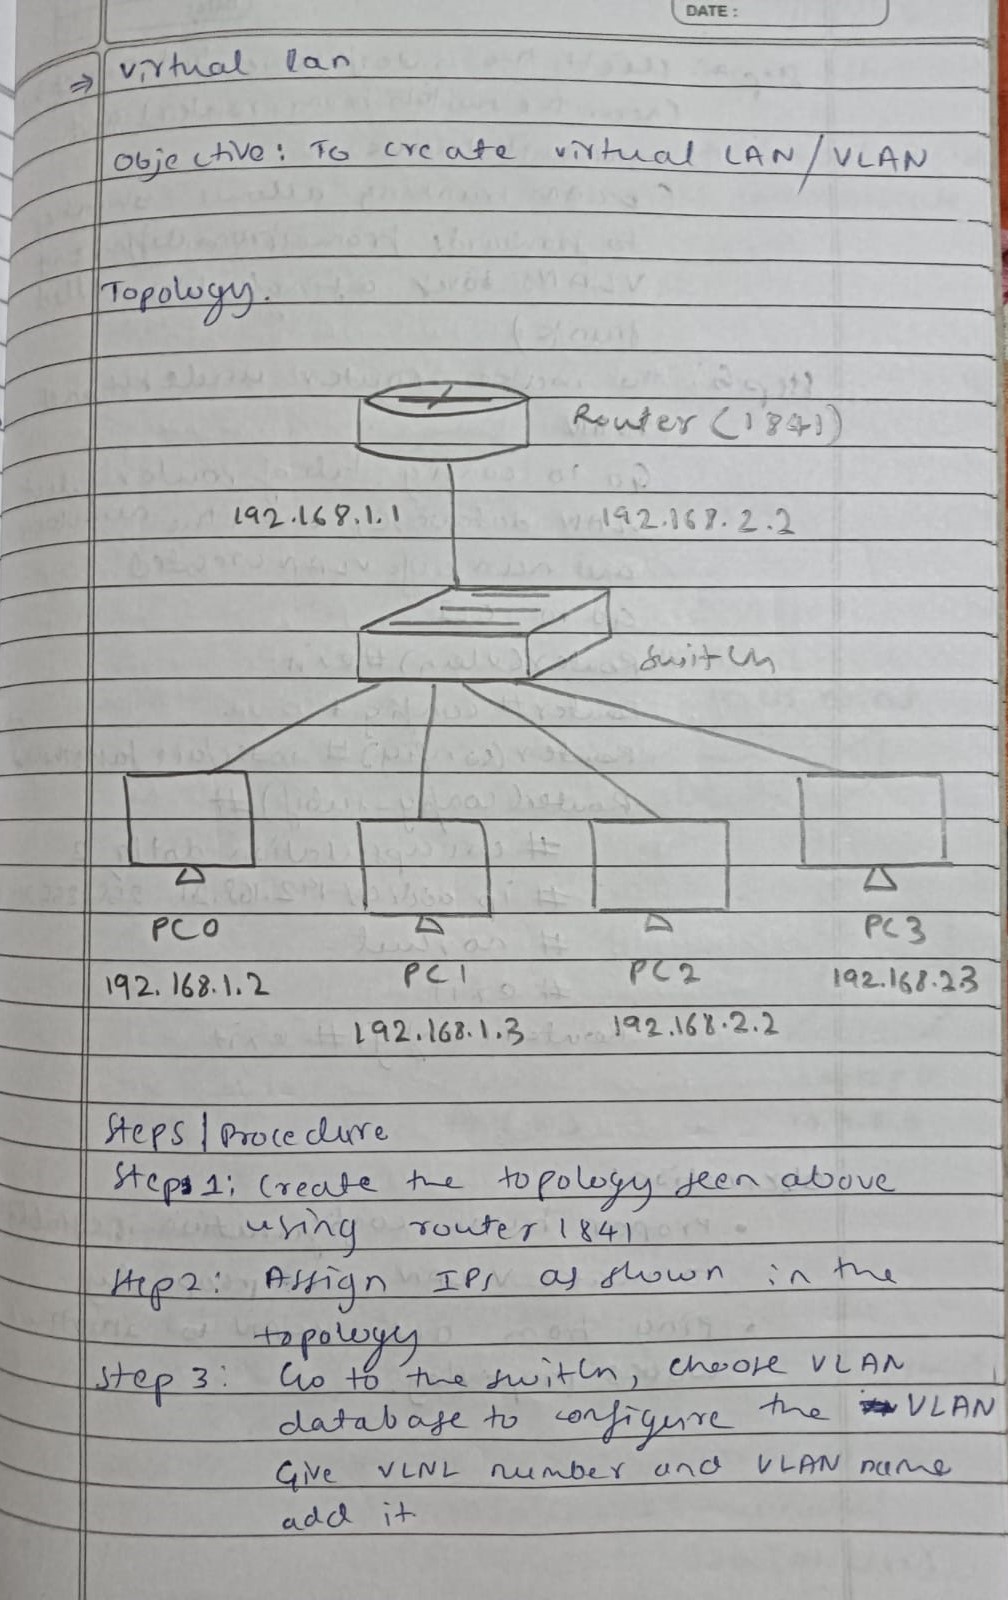 DATE :
⇒ Virtual lan
Objective: To create virtual LAN/VLAN
Topology.
Router (1841)
192.168.1.1 192.168.2.2
Switch
PC0 PC3
PC1 PC2
192.168.1.2 192.168.23
192.168.1.3 192.168.2.2
Steps | Procedure
Steps 1: Create the topology seen above
using router 1841
Step 2: Assign IPs as shown in the
topology
Step 3: Go to the switch, choose VLAN
database to configure the VLAN
Give VLNL number and VLAN name
add it